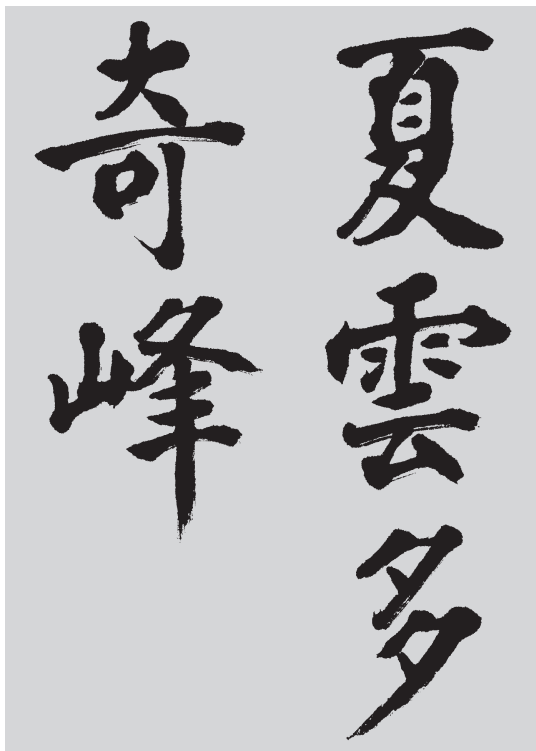 夏雲多
奇峰